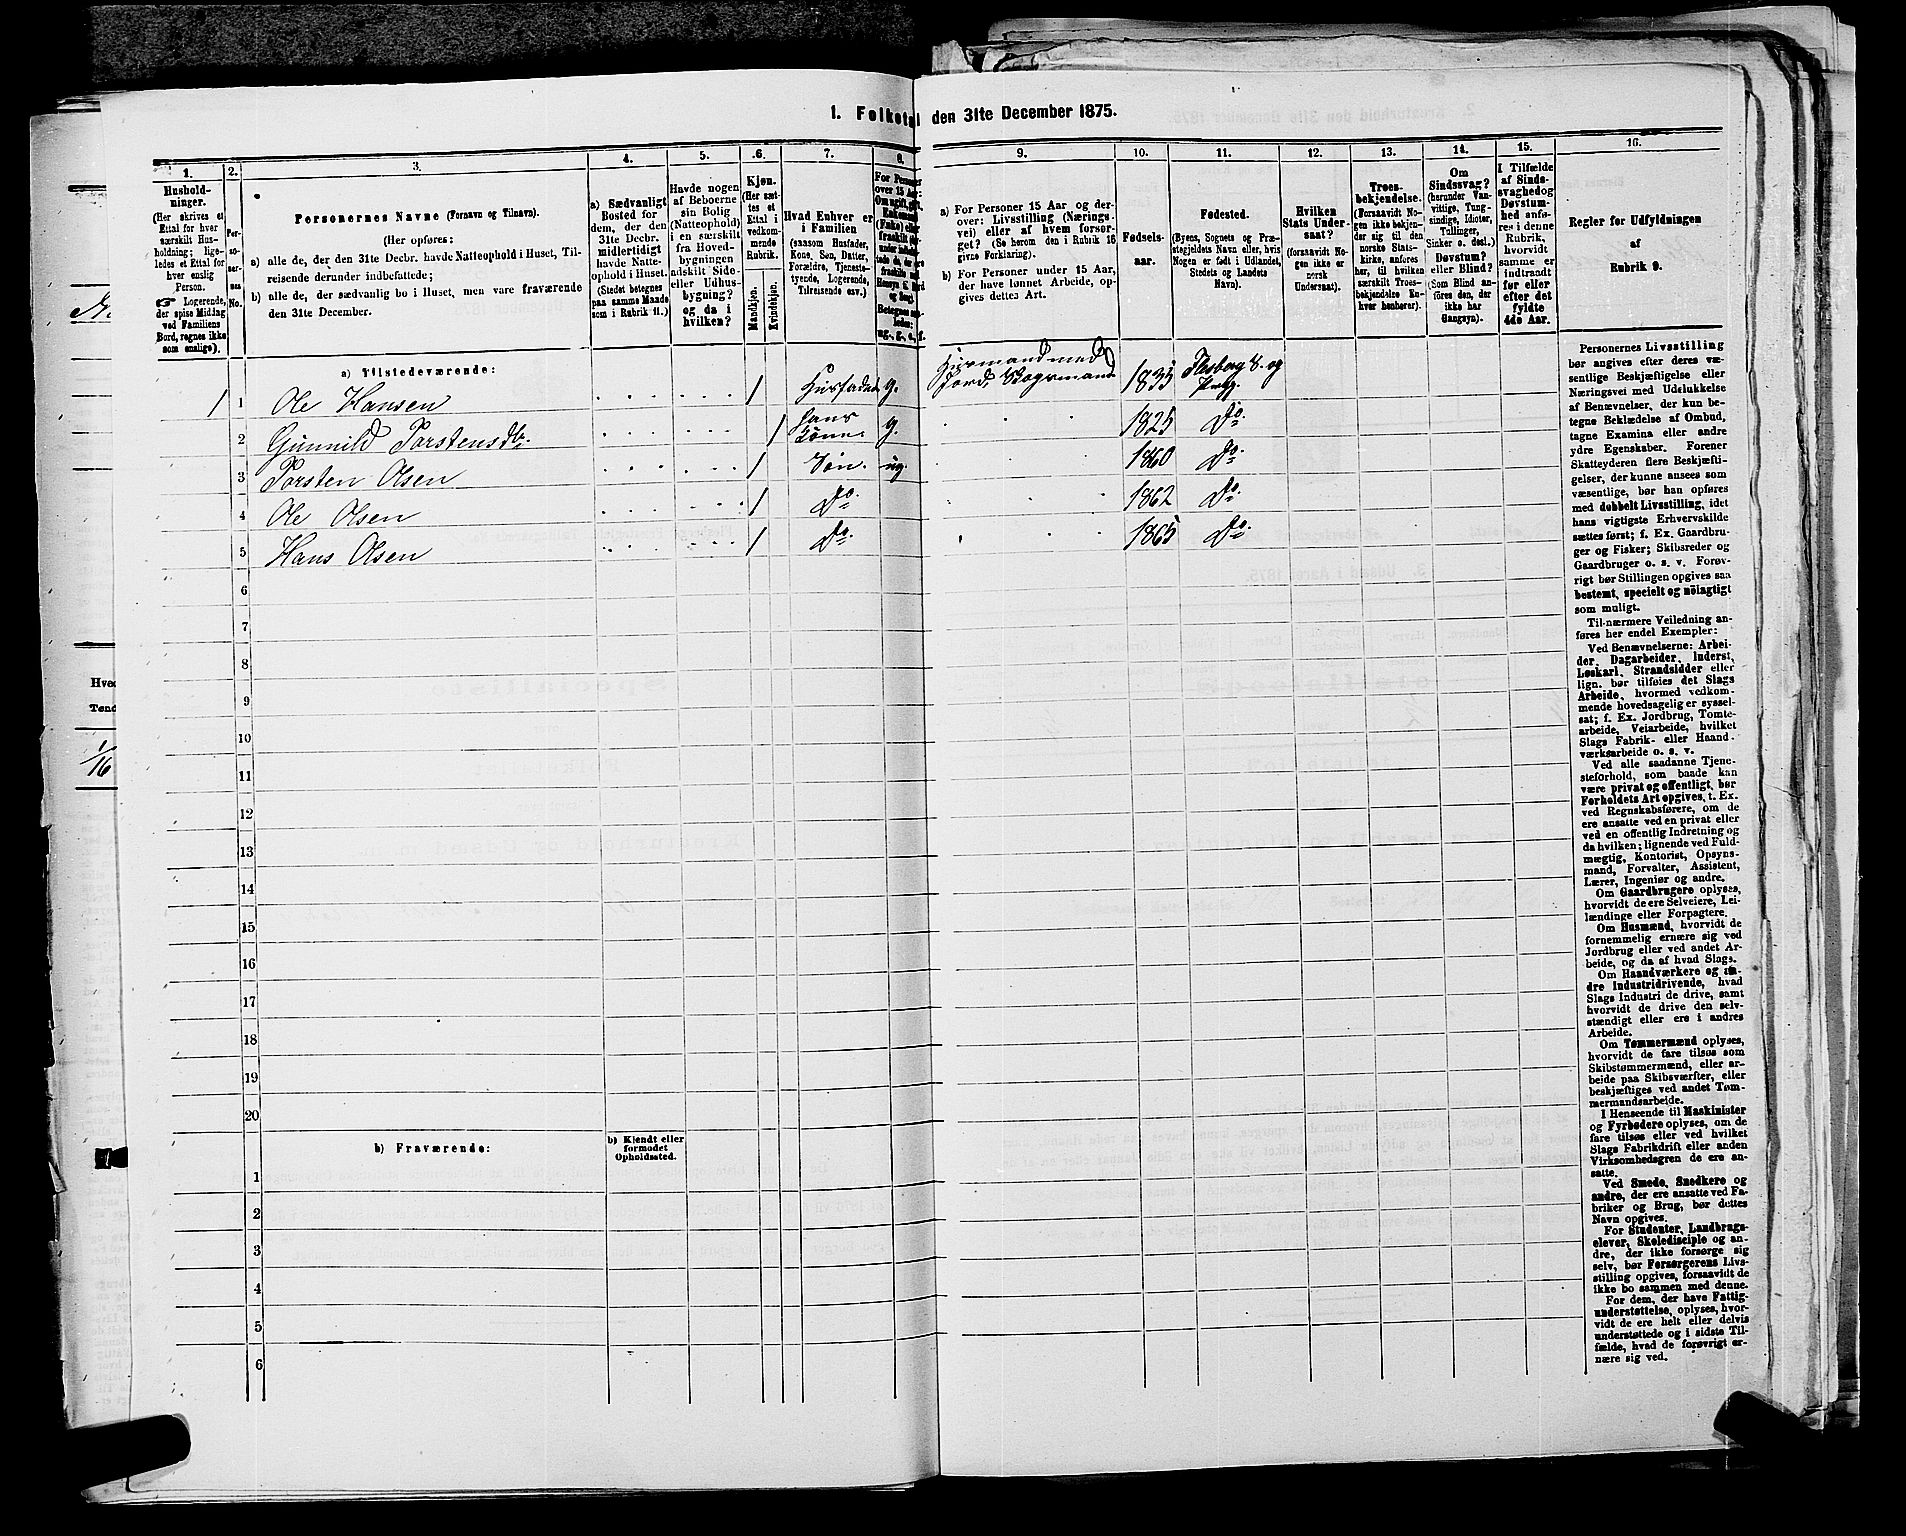 1. Folketæl den 31te December 1875.
1.
Hushold-
ninger.
(Her skrives et
Ettal for hver
særskilt Hus-
holdning; lige-
ledes et Ettal for
hver enslig
Person.
☞ Logerende,
der spise Middag
ved Familiens
Bord, regnes ikke
som enslige).
2.
Per-
so-
ner-
nes
No.
3.
Personernes Navne (Fornavn og Tilnavn).
(Her opføres:
a) alle de, der den 31te Decbr. havde Natteophold i Huset, Til-
reisende derunder indbefattede;
b) alle de, der sædvanlig bo i Huset, men vare fraværende
den 31te December.
4.
a) Sædvanligt
Bosted for
dem, der den
31te Decbr.
midlertidigt
havde Natte-
ophold i Huset.
(Stedet betegnes
paa samme Maade
som i Rubrik 11.)
5.
Havde nogen
af Beboerne
sin Bolig
(Natteophold)
i en særskilt
fra Hoved-
bygningen
adskilt Side-
eller Udhus-
bygning?
og da i
hvilken?
6.
Kjøn.
(Her sæt-
tes et
Ettal i
vedkom-
mende
Rubrik.
Mandkjøn.
Kvindekjøn.
7.
Hvad Enhver er
i Familien
(saasom Husfader,
Kone, Søn, Datter,
Forældre, Tjeneste-
tyende, Logerende,
Tilreisende osv.)
8.
For Personer
over 15 Aar:
9.
a) For Personer 15 Aar og der-
over: Livsstilling (Nærings-
vei) eller af hvem forsør-
get? (Se herom den i Rubrik 16
givne Forklaring).
b) For Personer under 15 Aar,
der have lønnet Arbeide, op-
gives dettes Art.
10.
Fødsels-
aar.
11.
Fødested.
(Byens, Sognets og Præ-
stegjeldets Navn eller, hvis
Nogen er født i Udlandet,
Stedets og Landets
Navn).
12.
Hvilken
Stats Under-
saat?
(forsaavidt No-
gen ikke er
norsk
Undersaat).
13.
Troes-
bekjendelse.
(Forsaavidt No-
gen ikke bekjen-
der sig til den
norske Stats-
kirke, anføres
her, til hvilken
særskilt Troes-
bekjendelse En-
hver henhører).
14.
Om
Sindssvag?
(herunder Van-
vittige, Tung-
sindige, Idioter,
Tullinger,
Sinker o. desl.)
Døvstum?
eller Blind?
(Som Blind an-
føres den, der
ikke har
Gangsyn).
15.
I Tilfælde
af Sinds-
svaghed og
Døvstum-
hed anfø-
res i denne
Rubrik,
hvorvidt
samme er
indtraadt
før eller
efter det
fyldte
4de Aar.
16.
Regler for Udfyldningen
af
Rubrik 9.
a) Tilstedeværende:
1 1 Ole Hansen 1 Husfader g. Husmand med Jord, Skogsmand 1835 Flesberg S. og Prstg.
2 Gunnild Torstensdtr. 1 hans Kone g. 1825 Do.
3 Torsten Olsen 1 Søn ug. 1860 Do.
4 Ole Olsen 1 Do. 1862 Do.
5 Hans Olsen 1 Do. 1865 Do.
6
7
8
9
10
11
12
13
14
15
16
17
18
19
20
b) Fraværende:
b) Kjendt eller
formodet
Opholdssted.
1
2
3
4
5
6
Personernes Livsstilling
bør angives efter deres væ-
sentlige Beskjæftigelse eller
Næringsvei med Udelukkelse
af Benævnelser, der kun be-
tegne Beklædelse af Ombud,
tagne Examina eller andre
ydre Egenskaber. Forener
Skatteyderen flere Beskjæfti-
gelser, der kunne ansees som
væsentlige, bør han opføres
med dobbelt Livsstilling, idet
hans vigtigste Erhvervskilde
sættes først; f. Ex. Gaardbru-
ger og Fisker; Skibsreder og
Gaardbruger o. s. v. Forøv-
rigt bør Stillingen opgives saa
bestemt, specielt og nøiagtigt
som muligt.
Til nærmere Veiledning an-
føres her endel Exempler:
Ved Benævnelserne: Arbei-
der, Dagarbeider, Inderst,
Løskarl, Strandsidder eller
lign. bør tilføies det Slags
Arbeide, hvormed vedkom-
mende hovedsagelig er syssel-
sat; f. Ex. Jordbrug, Tomte-
arbeide, Veiarbeide, hvilket
Slags Fabrik- eller Haand-
værksarbeide o. s. v.
Ved alle saadanne Tjene-
steforhold, som baade kan
være privat og offentligt, bør
Forholdets Art opgives, t. Ex.
ved Regnskabsførere, om de
ere ansatte ved en privat eller
ved en offentlig Indretning og
da hvilken; lignende ved Fuld-
mægtig, Kontorist, Opsyns-
mand, Forvalter, Assistent,
Lærer, Ingeniør og andre.
Om Gaardbrugere oplyses,
hvorvidt de ere Selveiere, Lei-
lændinge eller Forpagtere.
Om Husmænd, hvorvidt de
fornemmelig ernære sig ved
Jordbrug eller ved andet Ar-
beide, og da af hvad Slags.
Om Haandværkere og an-
dre Industridrivende, hvad
Slags Industri de drive, samt
hvorvidt de drive den selv-
stændigt eller ere i andres
Arbeide.
Om Tømmermænd oplyses,
hvorvidt de fare tilsøs som
Skibstømmermænd, eller ar-
beide paa Skibsværfter, eller
beskjæftiges ved andet Tøm-
mermandsarbeide.
I Henseende til Maskinister
og Fyrbødere oplyses, om de
fare tilsøs eller ved hvilket
Slags Fabrikdrift eller anden
Virksomhedsgren de ere an-
satte.
Ved Smede, Snedkere og
andre, der ere ansatte ved Fa-
briker og Brug, bør dettes
Navn opgives.
For Studenter, Landbrugs-
elever, Skoledisciple og an-
dre, der ikke forsørge sig
selv, bør Forsørgerens Livs-
stilling opgives, forsaavidt de
ikke bo sammen med denne.
For dem, der have Fattig-
understøttelse, oplyses, hvor-
vidt de ere helt eller delvis
understøttede og i sidste Til-
fælde, hvad de forøvrigt er-
nære sig ved.
Hved
Tønd
1/16